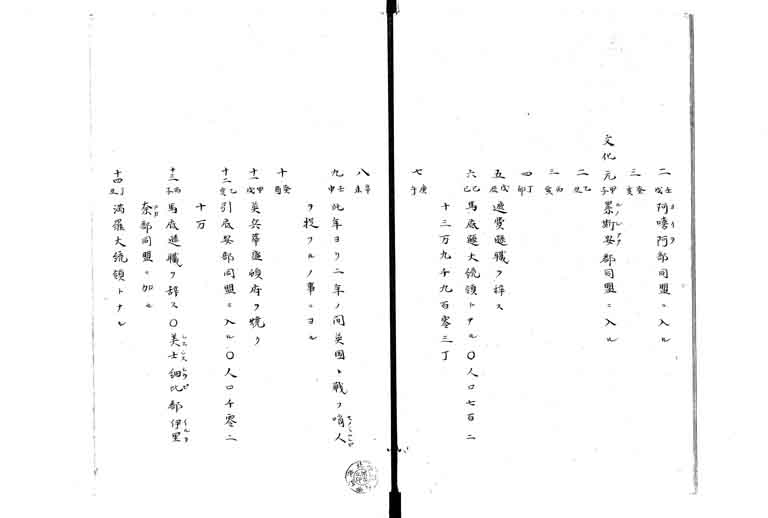 二 壬戌 阿嗜阿部同盟ニ入ル
三 癸亥
文化元 甲子 累斯安郡同盟ニ入ル
二 乙丑
三 丙寅
四 丁卯
五 戊辰 遮費遜職ヲ辞ス
六 己巳 馬底遜大統領トナル〇人口七百二
十三万九千九百零三丁
七 庚午
八 辛未
九 壬申 此年ヨリ二年ノ間英國ト戦フ
ヲ捉フルノ事ニヨル
十 癸酉
十一 甲戌 英兵華盛頓府ヲ焼ク
十二 乙亥 引底安部同盟ニ入ル〇人口千零二
十万
十三 丙子 馬底遜職ヲ辞ス〇美士細比部伊里
奈部同盟ニ加ル
十四 丁丑 満羅大統領トナル